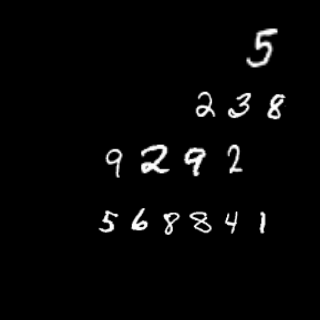 5
238
9292
568841